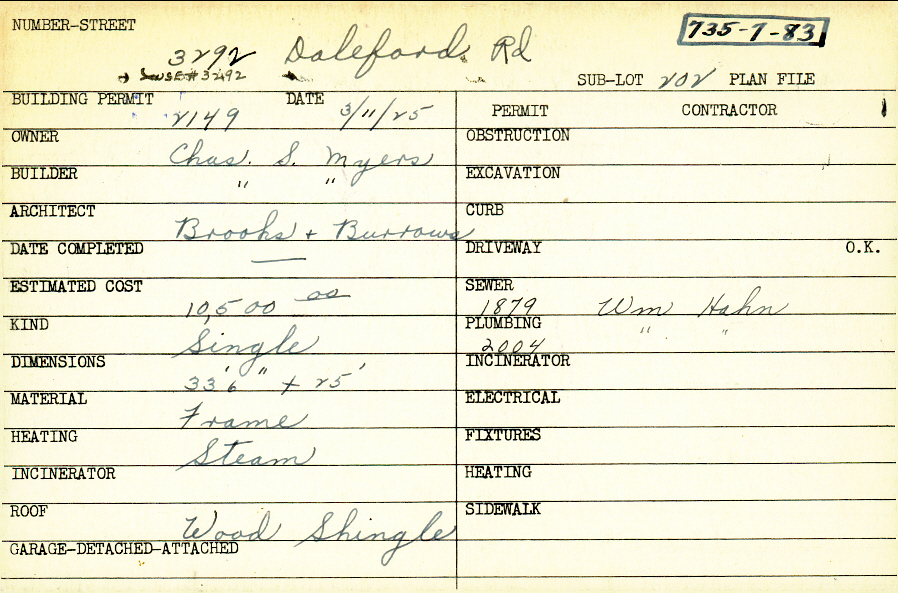 NUMBER-STREET
3292 Daleford Rd
735-7-83
USE #3292
SUB-LOT 202 PLAN FILE
BUILDING PERMIT 2149 DATE 3/11/25
OWNER Chas. S. Myers
BUILDER " "
ARCHITECT Brooks + Burrows
DATE COMPLETED —
ESTIMATED COST 10,500 00
KIND Single
DIMENSIONS 33' 6" + 25'
MATERIAL Frame
HEATING Steam
INCINERATOR
ROOF Wood Shingle
GARAGE-DETACHED-ATTACHED
PERMIT CONTRACTOR
OBSTRUCTION
EXCAVATION
CURB
DRIVEWAY O.K.
SEWER 1879 Wm Hahn
PLUMBING 2004 " "
INCINERATOR
ELECTRICAL
FIXTURES
HEATING
SIDEWALK